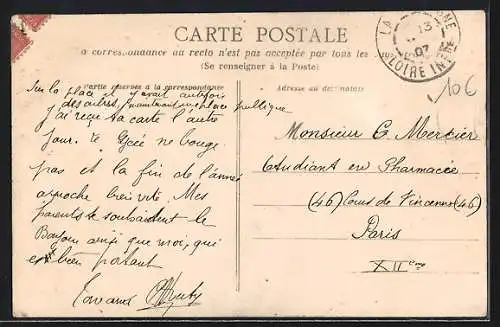 CARTE POSTALE
La correspondance au recto n'est pas acceptée par tous les pays
(Se renseigner à la Poste)
Partie réservée à la correspondance
Sur la place il y avait autrefois
des arbres, maintenant place publique
j'ai reçu ta carte l'autre
jour. le Lycée ne bouge
pas et la fin de l'année
approche bien vite. Mes
parents te souhaitent le
Bonjour ainsi que moi, qui
est bien portant
Edouard
Adresse du destinataire
Monsieur C. Mercier
Etudiant en Pharmacie
(46) Cours de Vincennes (46)
Paris
XIIème
LA
13
07
LOIRE INFRE
10€